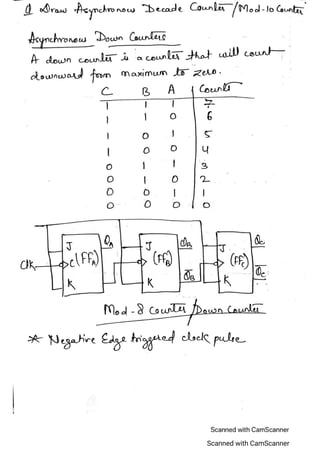 Q Draw Asynchronous Decade Counter/Mod-10 Counter
Asynchronous Down Counters
A down counter is a counter that will count
downward from maximum to zero.
C B A Counts
1 1 1 7
1 1 0 6
1 0 1 5
1 0 0 4
0 1 1 3
0 1 0 2
0 0 1 1
0 0 0 0
J QA J QB J QC
Clk C (FFA) (FFB) (FFC)
K K Q̅B K Q̅C
Mod-8 Counter/Down Counter
* Negative Edge triggered clock pulse
Scanned with CamScanner
Scanned with CamScanner